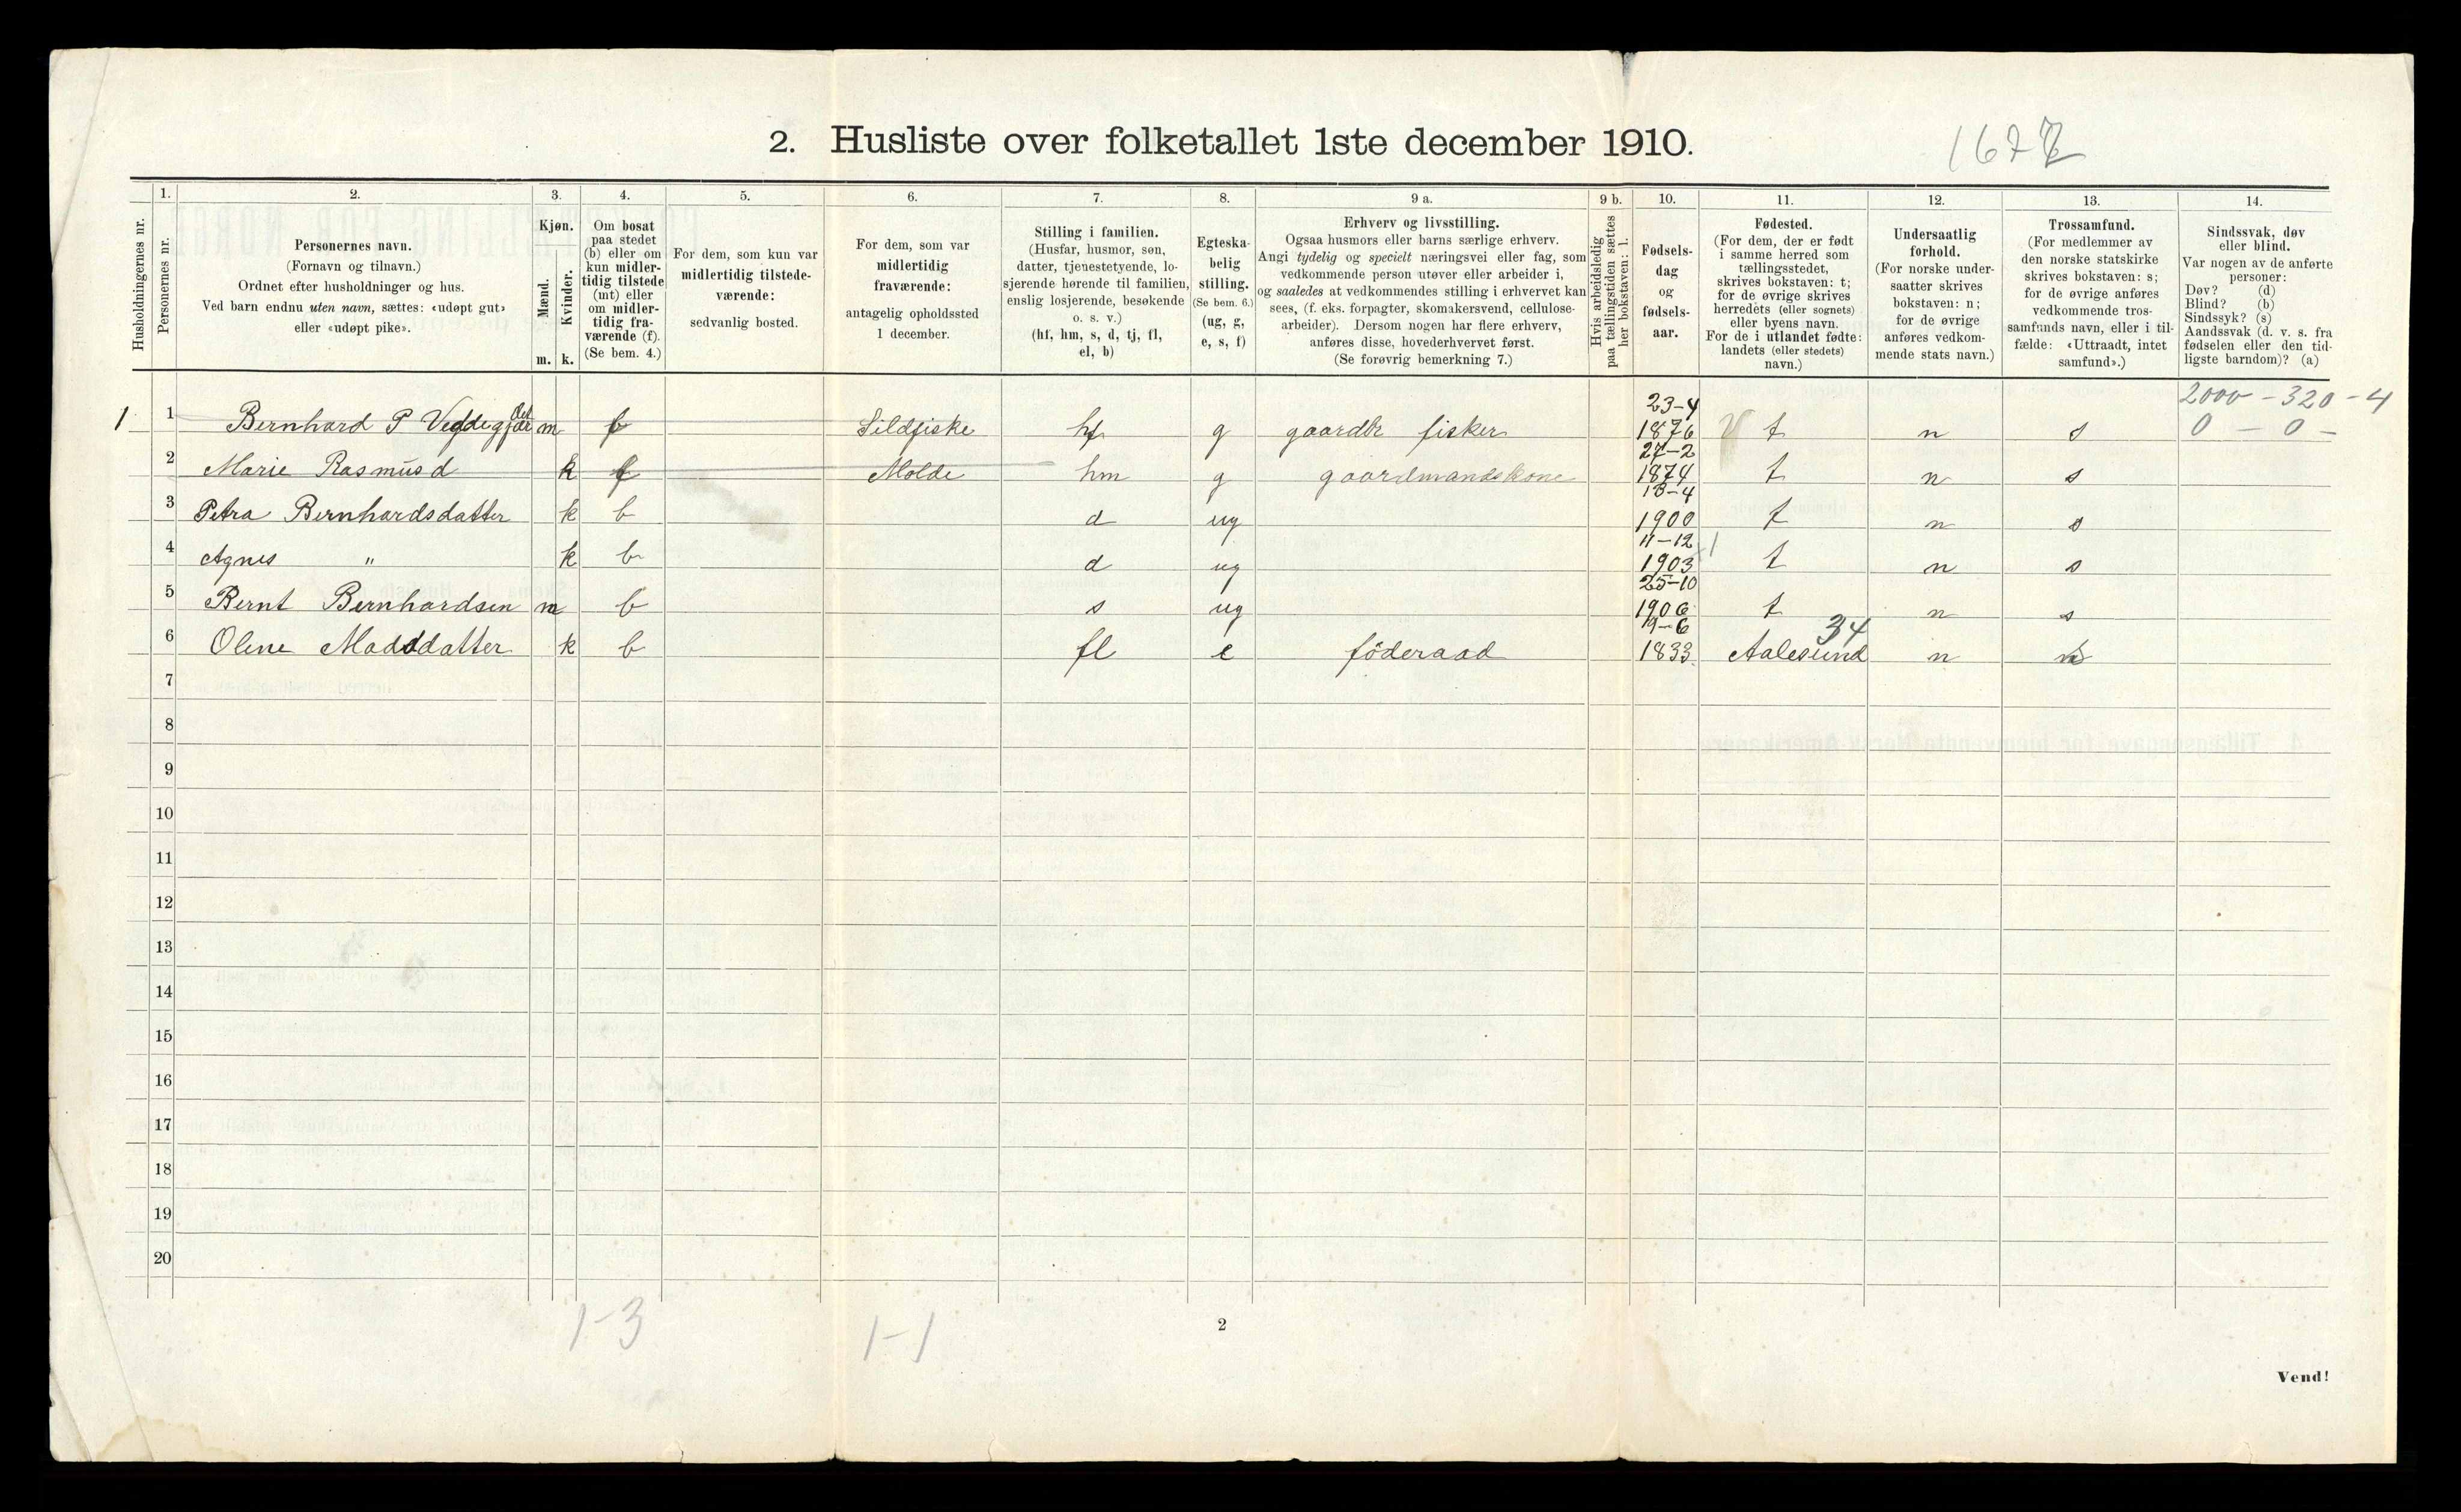 2. Husliste over folketallet 1ste december 1910.
Husholdningernes nr.
1.
Personernes nr.
2.
Personernes navn.
(Fornavn og tilnavn.)
Ordnet efter husholdninger og hus.
Ved barn endnu uten navn, sættes: «udøpt gut»
eller «udøpt pike».
3.
Kjøn.
Mænd.
Kvinder.
m. k.
4.
Om bosat
paa stedet
(b) eller om
kun midler-
tidig tilstede
(mt) eller
om midler-
tidig fra-
værende (f).
(Se bem. 4.)
5.
For dem, som kun var
midlertidig tilstede-
værende:
sedvanlig bosted.
6.
For dem, som var
midlertidig
fraværende:
antagelig opholdssted
1 december.
7.
Stilling i familien.
(Husfar, husmor, søn,
datter, tjenestetyende, lo-
sjerende hørende til familien,
enslig losjerende, besøkende
o. s. v.)
(hf, hm, s, d, tj, fl,
el, b)
8.
Egteska-
belig
stilling.
(Se bem. 6.)
(ug, g,
e, s, f)
9 a.
Erhverv og livsstilling.
Ogsaa husmors eller barns særlige erhverv.
Angi tydelig og specielt næringsvei eller fag, som
vedkommende person utøver eller arbeider i,
og saaledes at vedkommendes stilling i erhvervet kan
sees, (f. eks. forpagter, skomakersvend, cellulose-
arbeider). Dersom nogen har flere erhverv,
anføres disse, hovederhvervet først.
(Se forøvrig bemerkning 7.)
9 b.
Hvis arbeidsledig
paa tællingstiden sættes
her bokstaven: l.
10.
Fødsels-
dag
og
fødsels-
aar.
11.
Fødested.
(For dem, der er født
i samme herred som
tællingsstedet,
skrives bokstaven: t;
for de øvrige skrives
herredets (eller sognets)
eller byens navn.
For de i utlandet fødte:
landets (eller stedets)
navn.)
12.
Undersaatlig
forhold.
(For norske under-
saatter skrives
bokstaven: n;
for de øvrige
anføres vedkom-
mende stats navn.)
13.
Trossamfund.
(For medlemmer av
den norske statskirke
skrives bokstaven: s;
for de øvrige anføres
vedkommende tros-
samfunds navn, eller i til-
fælde: «Uttraadt, intet
samfund».)
14.
Sindssvak, døv
eller blind.
Var nogen av de anførte
personer:
Døv? (d)
Blind? (b)
Sindssyk? (s)
Aandssvak (d. v. s. fra
fødselen eller den tid-
ligste barndom)? (a)
2000 - 320 - 4
0 - 0 -
1 1 Bernhard P m Sildfiske hf g gaardbr fisker 23-4 1876 t n s
2 Marie Rasmusd k f Molde hm g gaardmandskone 27-2 1874 t n s
3 Petra Bernhardsdatter k b d ug 13-4 1900 t n s
4 Agnes " k b d ug 11-12 1903 t n s
5 Bernt Bernhardsen m b s ug 25-10 1906 t n s
6 Oline Madsdatter k b fl e föderaad 19-6 1833 34 Aalesund n
7
8
9
10
11
12
13
14
15
16
17
18
19
20
1-3
1-1
2
Vend!